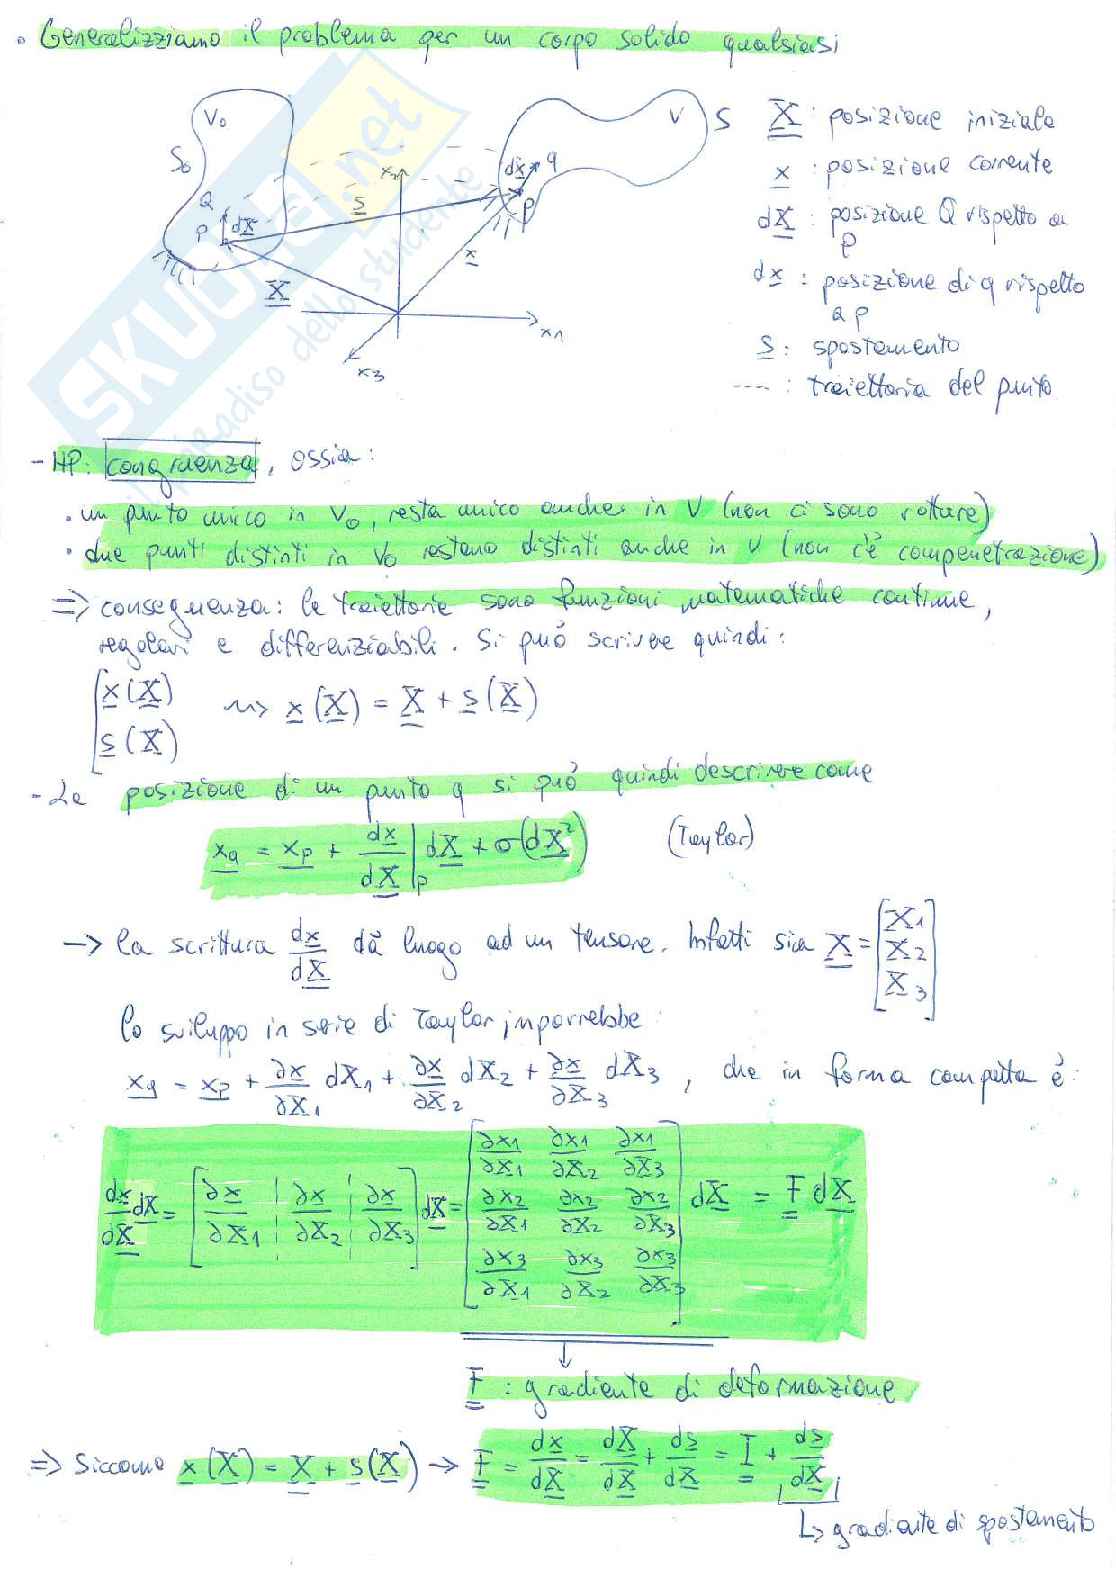 • Generalizziamo il problema per un corpo solido qualsiasi
V₀
S₀
Q
P
dX
X
S
x₂
x₁
x₃
x
dx
q
p
V
S
X : posizione iniziale
x : posizione corrente
dX : posizione Q rispetto a
P
dx : posizione di q rispetto
a p
s : spostamento
---- : traiettoria del punto
SKUOLA.net
il paradiso dello studente
- HP: congruenza, ossia:
• un punto unico in V₀, resta unico anche in V (non ci sono rotture)
• due punti distinti in V₀ restano distinti anche in V (non c'è compenetrazione)
=> conseguenza: le traiettorie sono funzioni matematiche continue,
regolari e differenziabili. Si può scrivere quindi:
x(X)
s(X)
~> x(X) = X + s(X)
- La posizione di un punto q si può quindi descrivere come
x_q = x_p + dx/dX |_p dX + σ(dX²) (Taylor)
-> la scrittura dx/dX dà luogo ad un tensore. Infatti sia X = [X₁ X₂ X₃]
lo sviluppo in serie di Taylor imporrebbe:
x_q = x_p + ∂x/∂X₁ dX₁ + ∂x/∂X₂ dX₂ + ∂x/∂X₃ dX₃, che in forma compatta è:
dx/dX dX = [∂x/∂X₁ ¦ ∂x/∂X₂ ¦ ∂x/∂X₃] dX = [∂x₁/∂X₁ ∂x₁/∂X₂ ∂x₁/∂X₃
∂x₂/∂X₁ ∂x₂/∂X₂ ∂x₂/∂X₃
∂x₃/∂X₁ ∂x₃/∂X₂ ∂x₃/∂X₃] dX = F dX
F : gradiente di deformazione
=> Siccome x(X) = X + s(X) -> F = dx/dX = dX/dX + ds/dX = I + ds/dX
↳ gradiente di spostamento